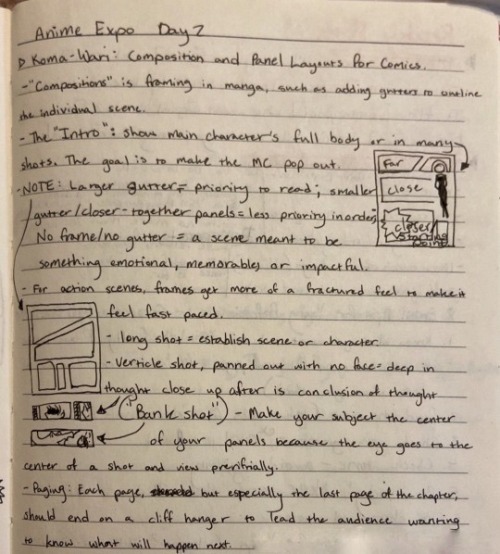 Anime Expo Day 2
Koma-Wari: Composition and Panel Layouts for Comics.
-"Compositions" is framing in manga, such as adding gutters to outline
the individual scene.
- The "Intro": show main character's full body or in many
shots. The goal is to make the MC pop out.
-NOTE: Larger gutter = priority to read; smaller
gutter/closer-together panels = less priority in order;
No frame/no gutter = a scene meant to be
something emotional, memorable, or impactful.
far
close
closer/
starting
point
- For action scenes, frames get more of a fractured feel to make it
feel fast paced.
- long shot = establish scene or character
- Verticle shot, panned out with no face = deep in
thought close up after is conclusion of thought
("Bank shot") - Make your subject the center
of your panels because the eye goes to the
center of a shot and views
- Paging: Each page, but especially the last page of the chapter,
should end on a cliff hanger to lead the audience wanting
to know what will happen next.